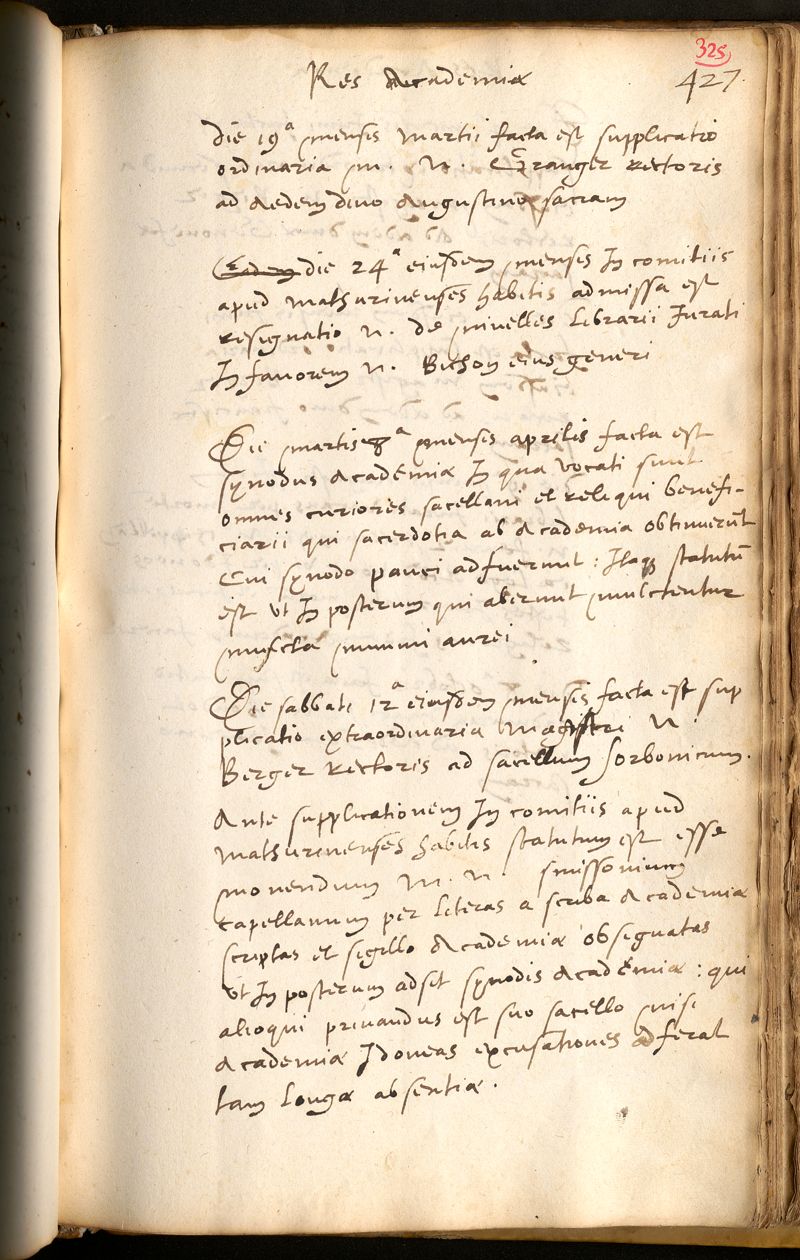 325
Res Academiæ 427.
die 19ª mensis martii facta est supplicatio
ordinaria m. N. Granger Rectoris
ad ædem divo Augustino sacram
Eadem die 24ª eiusdem mensis In comitiis
apud mathurinenses habitis admissa est
resignatio N. de nivelles Librarii Iurati
In favorem N. Bichon eius generi
Die martis 8ª mensis aprilis facta est
synodus Academiæ In qua vocati sunt
omnes curiores sacellani et reliqui benefi-
ciarii qui sacerdotia ab Academia obtinuerūt
Cui synodo pauci adfuerunt : Itaq statutū
est ut In posterum qui aberunt mulctentur
mulcta nummi aurei
Die sabbati 12ª eiusdem mensis facta est sup
plicatio extraordinaria Magistri N.
Berger Rectoris ad sacellum sorbonicum.
Ante supplicationem In comitiis apud
mathurinenses habitis statutum est esse
monendum M. N. smissonium
capellanum per Literas a scriba Academiæ
scriptas et sigillo Academiæ obsignatas
ut In posterum adsit synodis Academiæ : qui
alioqui privandus est suo sacello nisi
Academiæ Idoneas excusationes adferat
tam Longæ absentiæ.